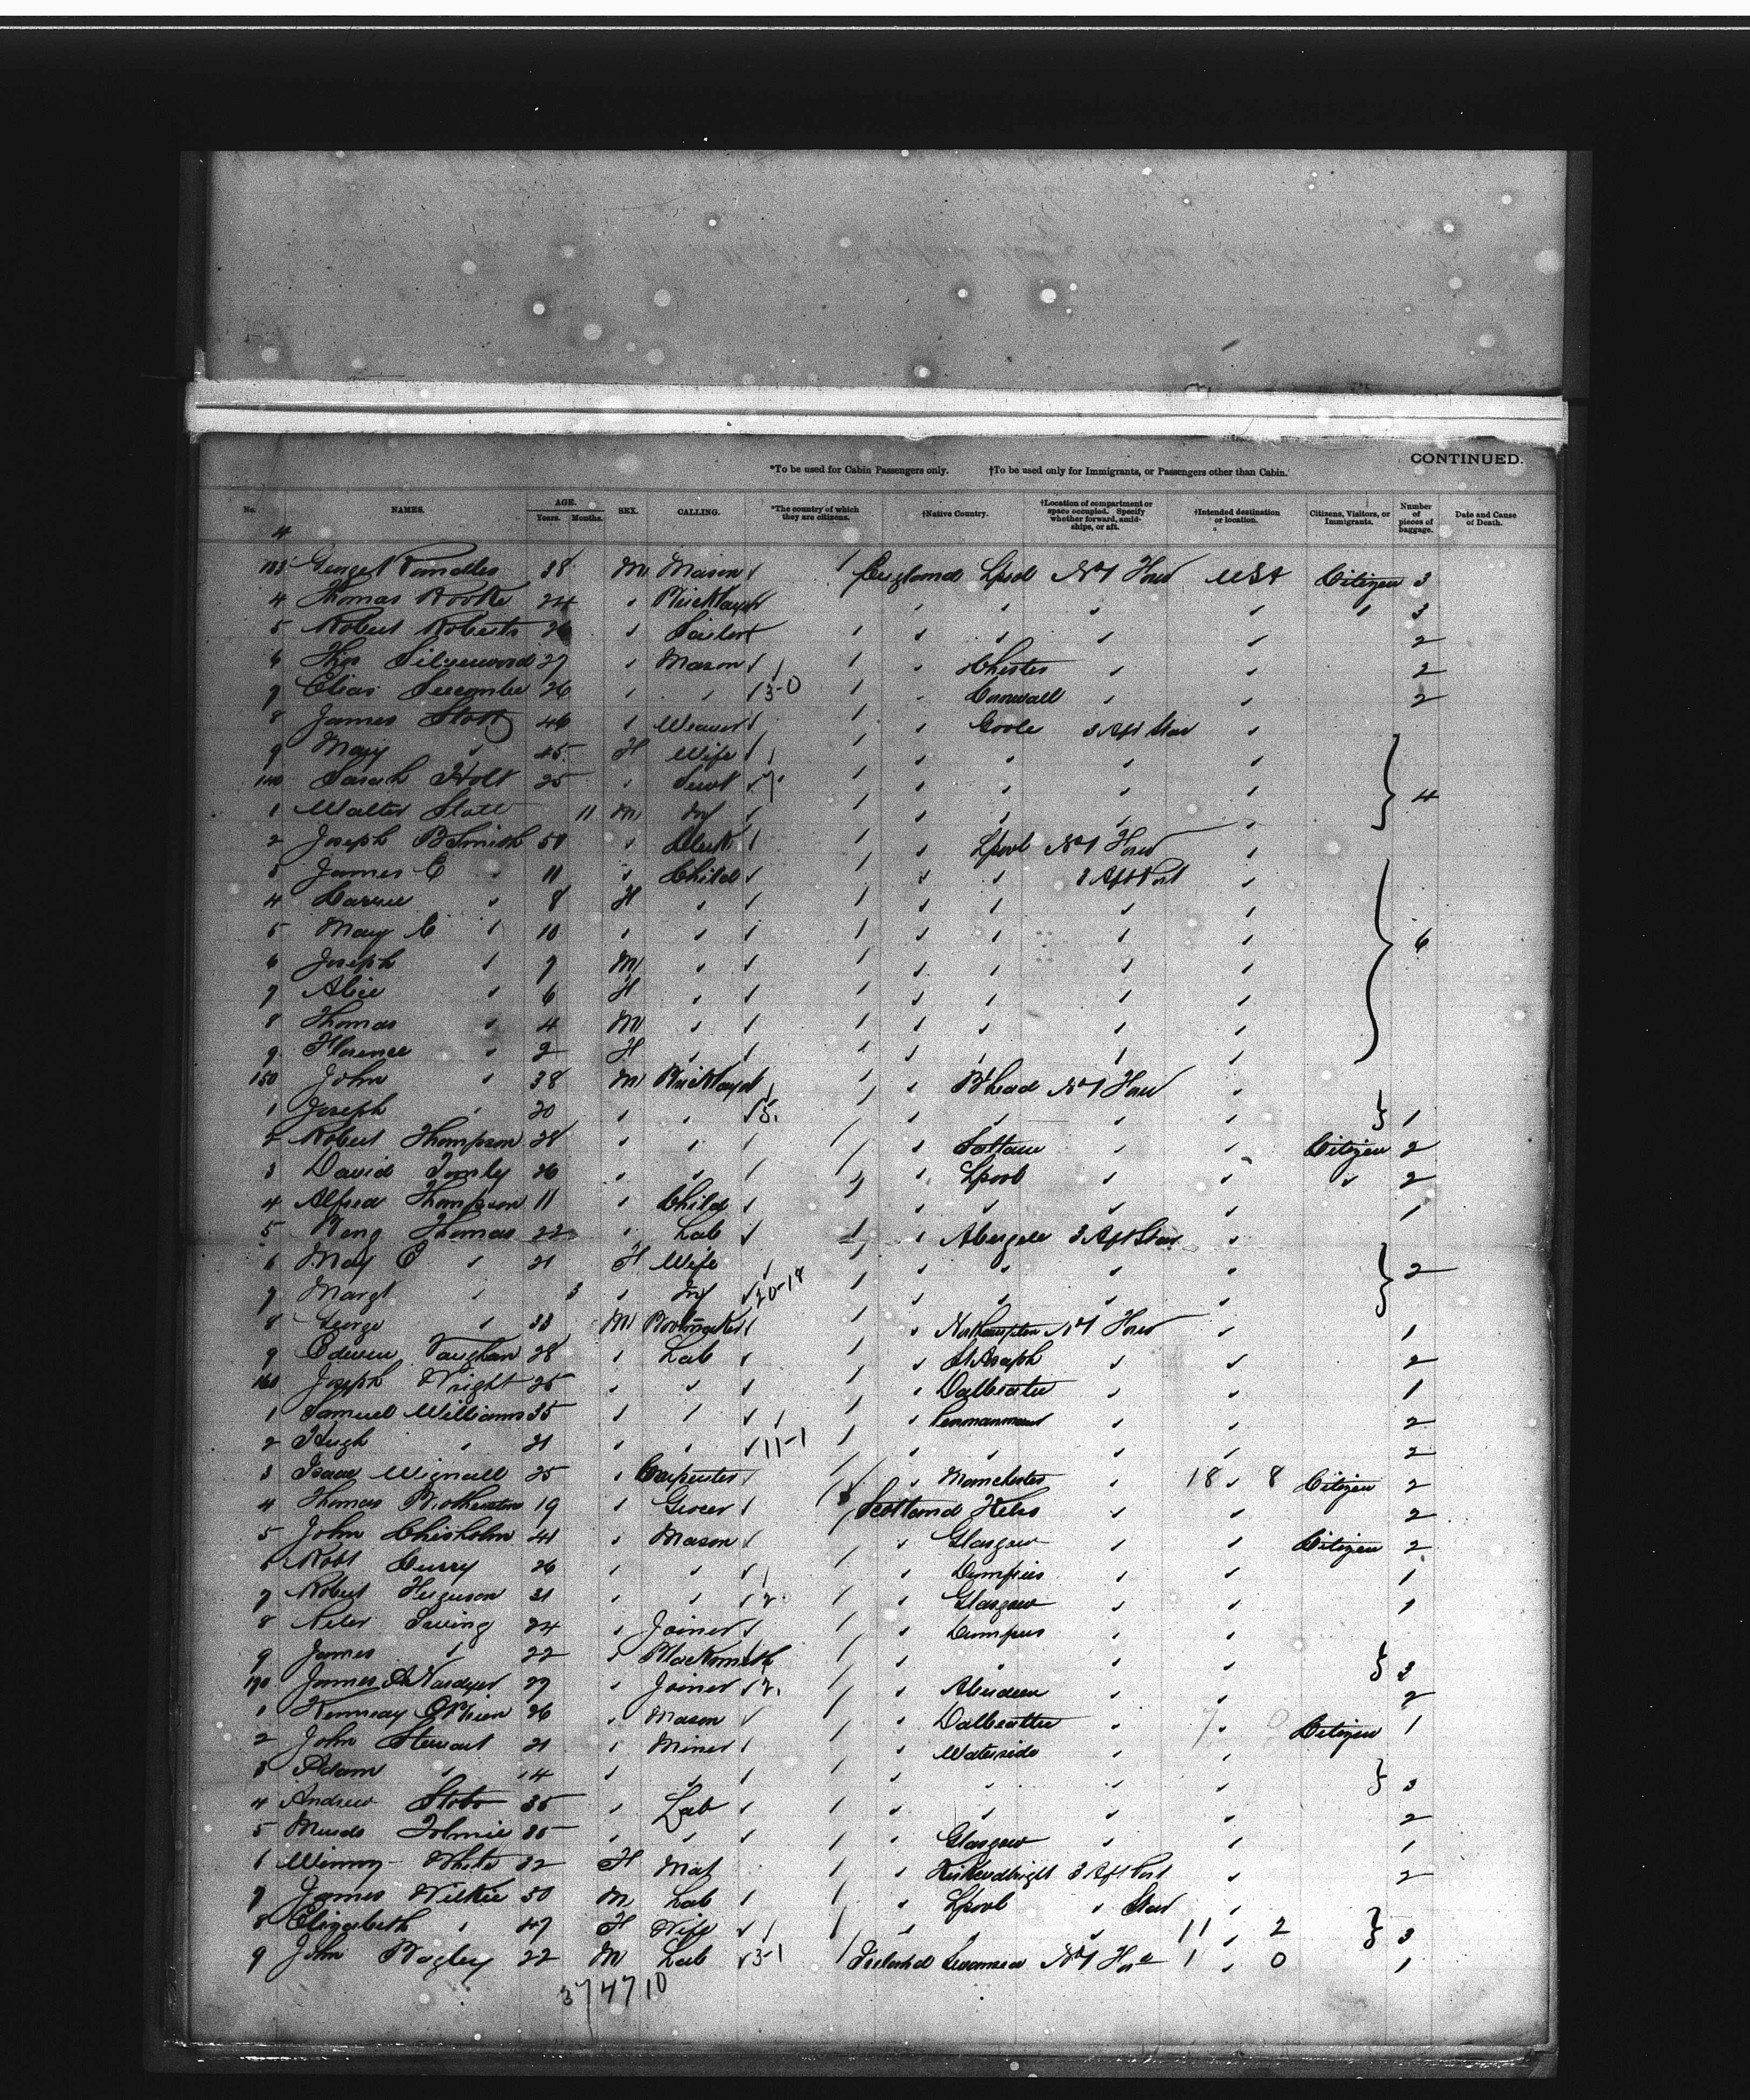 CONTINUED.
*To be used for Cabin Passengers only. †To be used only for Immigrants, or Passengers other than Cabin.
No. NAMES. AGE. Years. Months. SEX. CALLING. *The country of which they are citizens. †Native Country. †Location of compartment or space occupied. Specify whether forward, amidships, or aft. †Intended destination or location. Citizens, Visitors, or Immigrants. Number of pieces of baggage. Date and Cause of Death.
4
133 George Randles 38 M Mason England Lpool No 1 USA Citizen 3
4 Thomas Rooke 24 Bricklayer 3
5 Robert Roberts 26 2
6 Thos Silverwood 27 Mason Chester 2
7 Elias Seccombe 26 3-0 Cornwall 2
8 James Stott 46 Weaver Goole 3 Aft Star
9 Mary 45 F Wife
140 Sarah Holt 25 Servt 4
1 Walter Stott 11 M Inf
2 Joseph B Smith 50 Clerk Lpool No 1
3 James E 11 Child 3 Aft Port
4 Carrie 8 F
5 May E 10 6
6 Joseph 7 M
7 Alice 6 F
8 Thomas 4 M
9 Florence 2 F
150 John 38 M Bricklayer B'head No 1
1 Joseph 20 5 1
2 Robert Thompson 28 Citizen 2
3 David 26 Lpool 2
4 Alfred Thompson 11 Child 1
5 Thomas 22 Lab Abergele 3 Aft Star
6 May E 21 F Wife 2
7 Margt 3 Inf 20-18
8 George 33 M Bootmaker Northampton No 1 1
9 Edwin Vaughan 28 Lab St Asaph 2
160 Joseph Wright 25 Dalbeattie 1
1 Samuel Williams 35 Penmanmawr 2
2 Hugh 21 11-1 2
3 Isaac Wignall 25 Carpenter Manchester 18 8 Citizen 2
4 Thomas Brotherston 19 Grocer Scotland Kelso 2
5 John Chisholm 41 Mason Glasgow Citizen 2
6 Robt Curry 26 Dumfries 1
7 Robert Ferguson 31 2 Glasgow 1
8 Peter Irving 24 Joiner Dumfries
9 James 22 Blacksmith 3
170 James A 27 Joiner 2 Aberdeen 2
1 O'Brien 26 Mason Dalbeattie 7 0 Citizen 1
2 John Stewart 21 Miner Waterside
3 Adam 14 3
4 Andrew Stobo 35 Lab 2
5 Murdo Tolmie 35 Glasgow 1
6 White 32 F Mat Kirkcudbright 3 Aft Port 2
7 James Wilkie 50 M Lab Lpool Star
8 Elizabeth 47 F Wife 11 2 3
9 John Bagley 22 M Lab 3-1 Ireland Swansea No 1 1 0 1
37 47 10